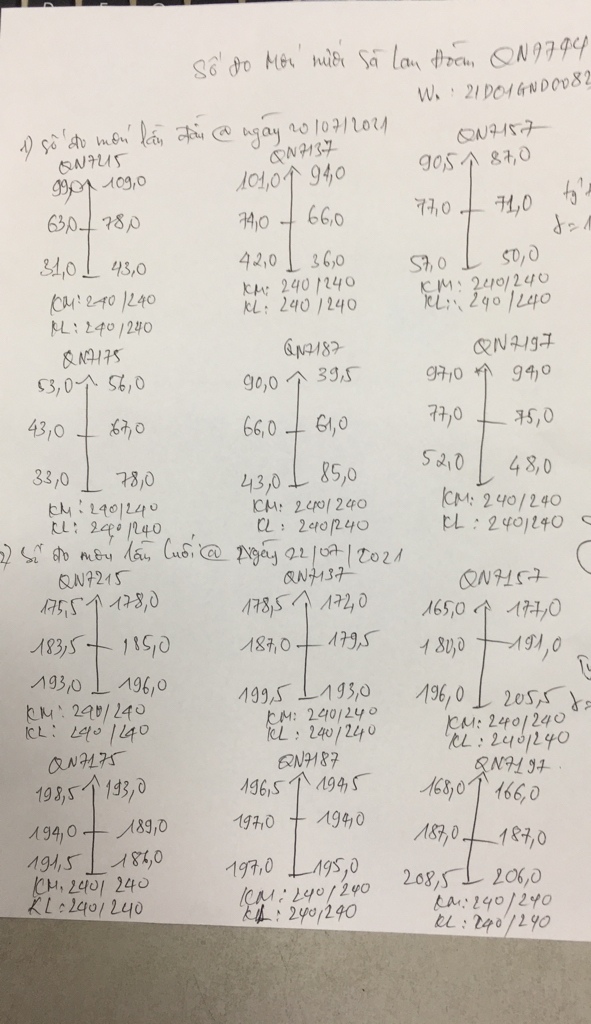 Số đo Món nước Sà Lan Đoàn QN9794
W. : 21D01GND0082
1) Số đo món lần đầu @ ngày 20/07/2021
QN7215 QN7137 QN7157
99,0 109,0 101,0 94,0 90,5 87,0
63,0 78,0 74,0 66,0 77,0 71,0
31,0 43,0 42,0 36,0 57,0 50,0
KM: 240/240 KM: 240/240 KM: 240/240
KL: 240/240 KL: 240/240 KL: 240/240
QN7175 QN7187 QN7197
53,0 56,0 90,0 39,5 97,0 94,0
43,0 67,0 66,0 61,0 77,0 75,0
33,0 78,0 43,0 85,0 52,0 48,0
KM: 240/240 KM: 240/240 KM: 240/240
KL: 240/240 KL: 240/240 KL: 240/240
2) Số đo món lần Cuối @ Ngày 22/07/2021
QN7215 QN7137 QN7157
175,5 178,0 178,5 172,0 165,0 177,0
183,5 185,0 187,0 179,5 180,0 191,0
193,0 196,0 199,5 193,0 196,0 205,5
KM: 240/240 KM: 240/240 KM: 240/240
KL: 240/240 KL: 240/240 KL: 240/240
QN7175 QN7187 QN7197
198,5 193,0 196,5 194,5 168,0 166,0
194,0 189,0 197,0 194,0 187,0 187,0
191,5 186,0 197,0 195,0 208,5 206,0
KM: 240/240 KM: 240/240 KM: 240/240
KL: 240/240 KL: 240/240 KL: 240/240